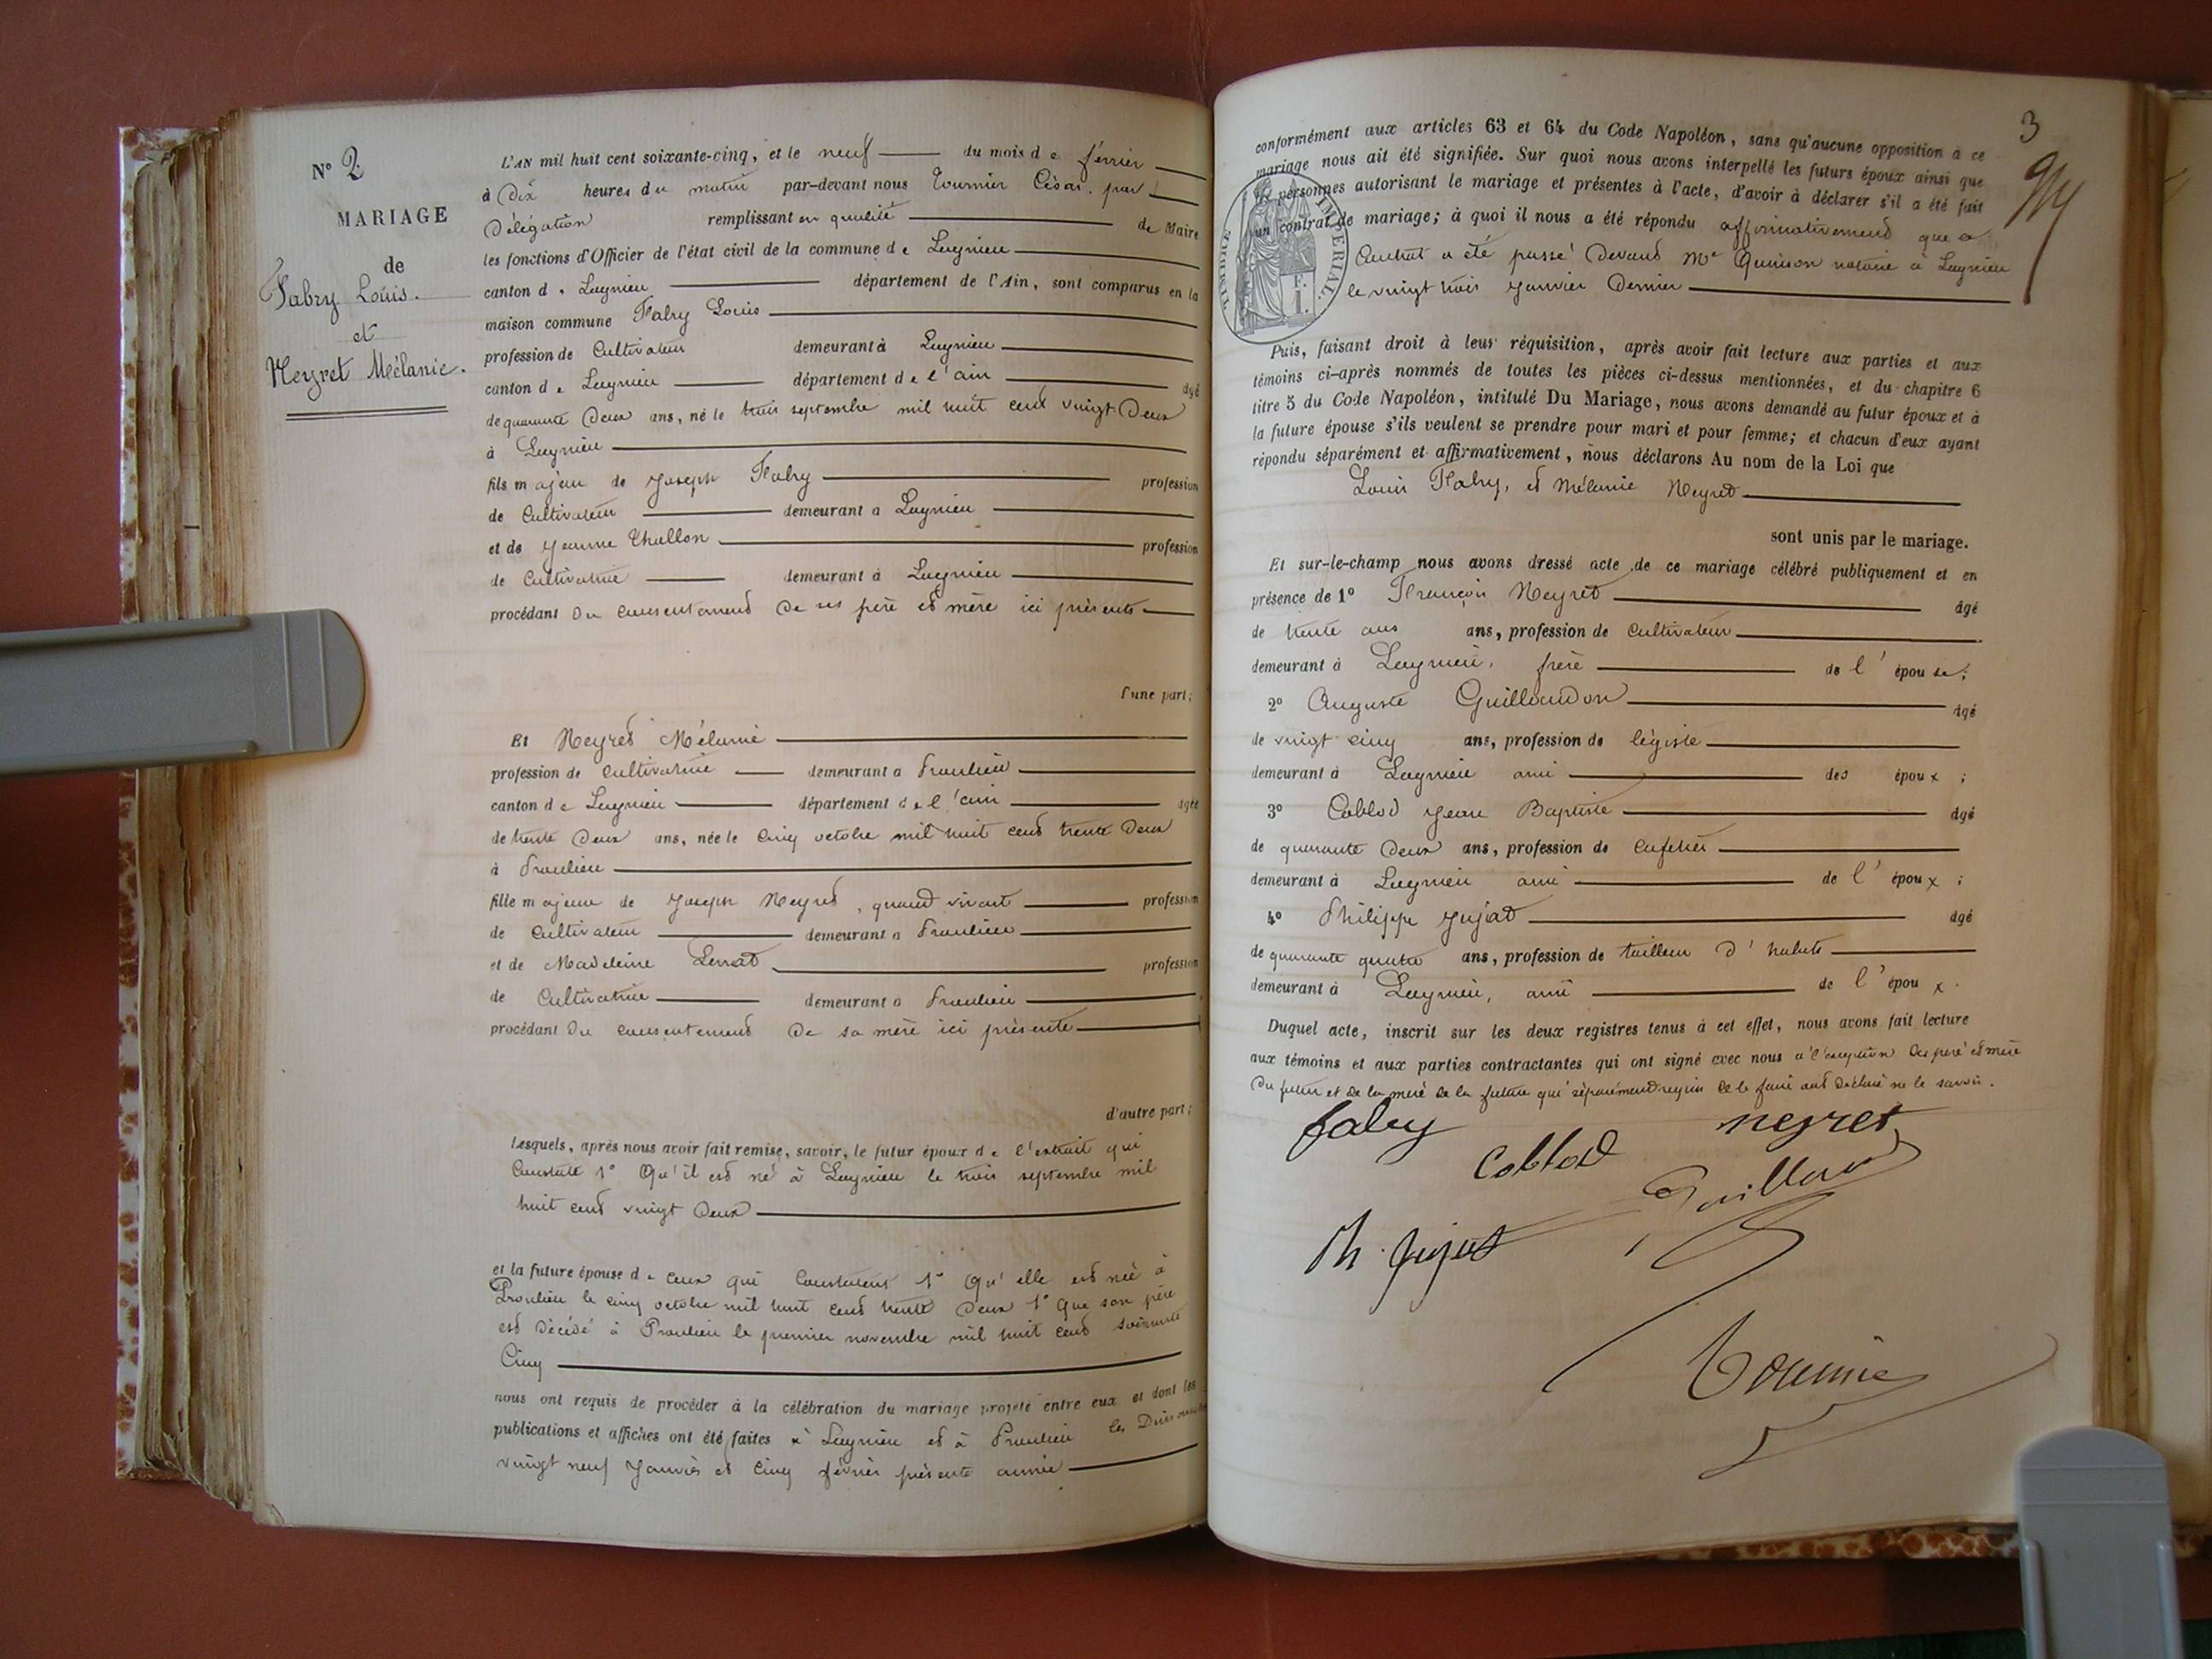 N° 2
MARIAGE
de
Fabry Louis.
et
Neyret Mélanie.
L'AN mil huit cent soixante-cinq, et le neuf du mois de février
à Dix heures du matin par-devant nous Tournier César. par
Délégation remplissant en qualité de Maire
les fonctions d'Officier de l'état civil de la commune de Lagnieu
canton de Lagnieu département de l'Ain, sont comparus en la
maison commune Fabry Louis
profession de Cultivateur demeurant à Lagnieu
canton de Lagnieu département de l'ain âgé
de quarante Deux ans, né le trois septembre mil huit cent vingt Deux
à Lagnieu
fils majeur de Joseph Fabry profession
de Cultivateur demeurant a Lagnieu
et de Jeanne Thollon profession
de Cultivatrice demeurant à Lagnieu
procédant Du consentement De ses père et mère ici présents
d'une part;
Et Neyret Mélanie
profession de cultivatrice demeurant a Proulieu
canton de Lagnieu département de l'ain âgée
de trente Deux ans, née le cinq octobre mil huit cent trente Deux
à Proulieu
fille majeure de Joseph Neyret, quand vivant profession
de Cultivateur demeurant a Proulieu
et de Madeleine profession
de Cultivatrice demeurant a Proulieu
procédant Du consentement De sa mère ici présente
d'autre part;
Lesquels, après nous avoir fait remise, savoir, le futur époux de l'extrait qui
Constate 1° Qu'il est né à Lagnieu le trois septembre mil
huit cent vingt Deux
et la future épouse de ceux qui Constatent 1° Qu'elle est née à
Proulieu le cinq octobre mil huit cent trente Deux 1° Que son père
est Décédé à Proulieu le premier novembre mil huit cent soixante
Cinq
nous ont requis de procéder à la célébration du mariage projeté entre eux et dont les
publications et affiches ont été faites à Lagnieu et à Proulieu les Dimanches
vingt neuf Janvier et cinq février présente année
3
conformément aux articles 63 et 64 du Code Napoléon, sans qu'aucune opposition à ce
mariage nous ait été signifiée. Sur quoi nous avons interpellé les futurs époux ainsi que
les personnes autorisant le mariage et présentes à l'acte, d'avoir à déclarer s'il a été fait
un contrat de mariage; à quoi il nous a été répondu affirmativement que ce
Contrat a été passé Devant Me Quinson notaire à Lagnieu
le vingt trois Janvier Dernier
TIMBRE IMPERIAL.
F.
I.
Puis, faisant droit à leur réquisition, après avoir fait lecture aux parties et aux
témoins ci-après nommés de toutes les pièces ci-dessus mentionnées, et du chapitre 6
titre 5 du Code Napoléon, intitulé Du Mariage, nous avons demandé au futur époux et à
la future épouse s'ils veulent se prendre pour mari et pour femme; et chacun d'eux ayant
répondu séparément et affirmativement, nous déclarons Au nom de la Loi que
Louis Fabry, et Mélanie Neyret
sont unis par le mariage.
Et sur-le-champ nous avons dressé acte de ce mariage célébré publiquement et en
présence de 1° François Neyret âgé
de trente ans ans, profession de Cultivateur
demeurant à Lagnieu, frère de l'épouse;
2° Auguste Guillaudon âgé
de vingt cinq ans, profession de légiste
demeurant à Lagnieu ami des époux;
3° Coblod Jean Baptiste âgé
de quarante Deux ans, profession de Cafetier
demeurant à Lagnieu ami de l'époux;
4° Philippe Jujat âgé
de quarante quatre ans, profession de tailleur d'habits
demeurant à Lagnieu, ami de l'époux.
Duquel acte, inscrit sur les deux registres tenus à cet effet, nous avons fait lecture
aux témoins et aux parties contractantes qui ont signé avec nous à l'exception des père et mère
Du futur et de la mère de la future qui séparément requis de le faire ont Déclaré ne le savoir.
fabry neyret
Coblod
Ph. Jujat
Tournier